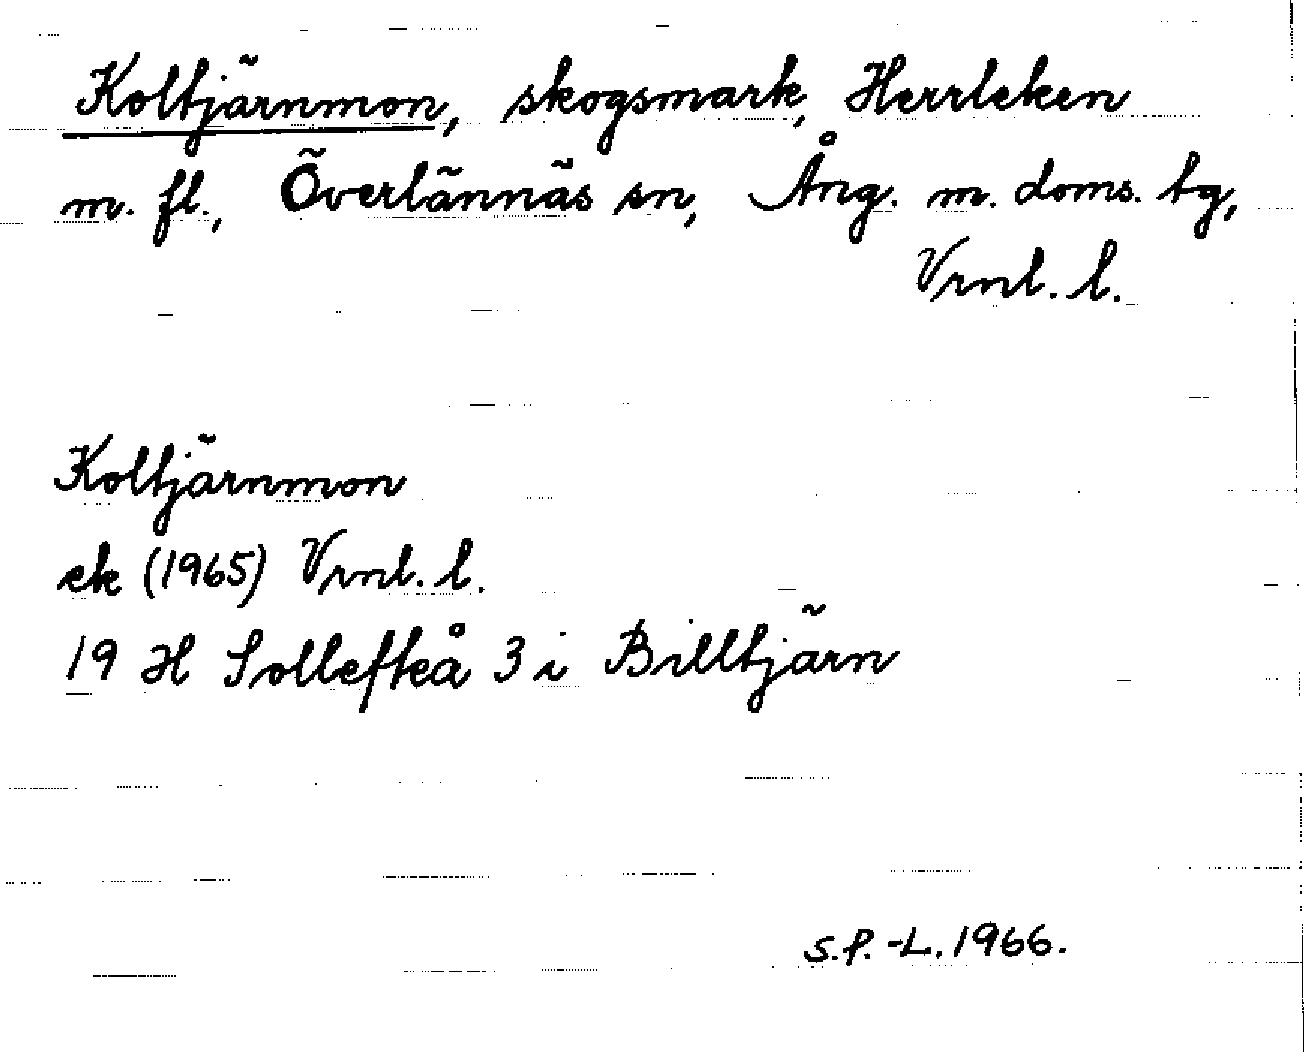 Koltjärnmon, skogsmark, Herrleken
m. fl., Överlännäs sn, Ång. m. doms. tg,
Vrnl. l.
Koltjärnmon
ek (1965) Vrnl. l.
19 H Sollefteå 3 i Billtjärn
S.P.-L. 1966.